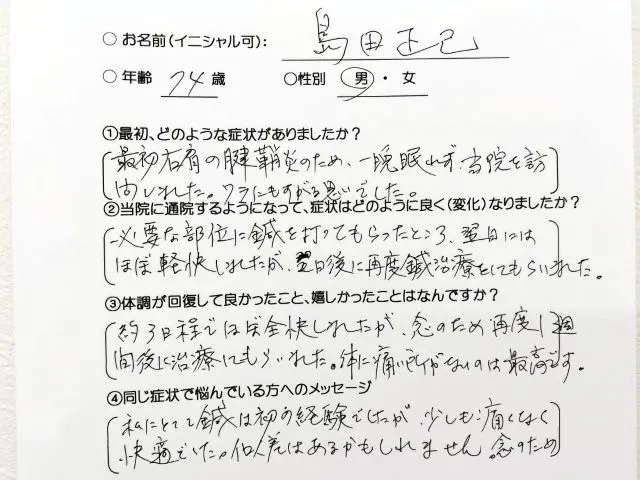 ○ お名前(イニシャル可): 島田正己
○ 年齢 74 歳 ○性別 男 ・ 女
①最初、どのような症状がありましたか?
最初右肩の腱鞘炎のため、一晩眠れず、当院を訪
問しました。ワラにもすがる思いでした。
②当院に通院するようになって、症状はどのように良く(変化)なりましたか?
必要な部位に鍼を打ってもらったところ、翌日には
ほぼ軽快しましたが、翌日後に再度鍼治療をしてもらいました。
③体調が回復して良かったこと、嬉しかったことはなんですか?
約3日程でほぼ全快しましたが、念のため再度1週
間後に治療してもらいました。体に痛い所がないのは最高です。
④同じ症状で悩んでいる方へのメッセージ
私にとって鍼は初の経験でしたが、少しも痛くなく
快適でした。個人差はあるかもしれません 念のため